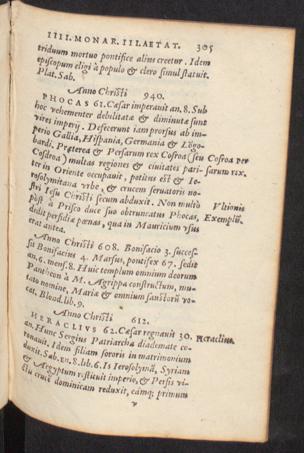 IIII. MONAR. II. AETAT. 305
triduum mortuo pontifice alius creetur. Idem
episcopum eligi à populo & clero simul statuit.
Plat. Sab.
Anno Christi 940.
PHOCAS 61. Cæsar imperauit an. 8. Sub
hoc vehementer debilitatæ & diminutæ sunt
vires imperij. Defecerunt iam prorsus ab im-
perio Gallia, Hispania, Germania & Lõgo-
bardi. Præterea & Persarum rex Cosroa (seu Cosroa per
Cosdroa) multas regiones & ciuitates pari- sarum rex.
ter in Oriente occupauit, potitus est & Ie-
rosolymitana vrbe, & crucem seruatoris no-
stri Iesu Christi secum abduxit. Non multò Vltionis
pòst à Prisco duce suo obtruncatus Phocas, Exemplũ.
dedit perfidiæ pœnas, qua in Mauricium vsus
erat antea.
Anno Christi 608. Bonifacio 3. succes-
sit Bonifacius 4. Marsus, pontifex 67. sedit
an. 6. mens. 8. Huic templum omnium deorum
Pantheon à M. Agrippa constructum, mu-
tato nomine, Mariæ & omnium sanctorũ vo-
cat. Blond. lib. 9.
Anno Christi 612.
HERACLIVS 62. Cæsar regnauit 30. Heraclius.
an. Hunc Sergius Patriarcha diademate co-
ronauit. Idem filiam sororis in matrimonium
duxit. Sab. æn. 8. lib. 6. Is Ierosolymã, Syriam
& Aegyptum restituit imperio, & Persis vi-
ctis crucẽ dominicam reduxit, eamq; primum
v